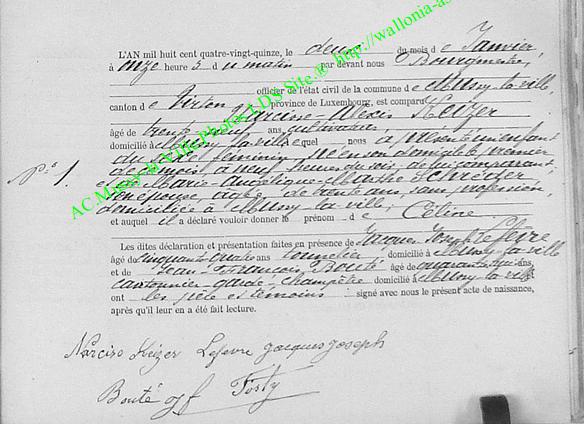 L'AN mil huit cent quatre-vingt-quinze, le deux du mois de Janvier,
à onze heures du matin par devant nous Bourgmestre,
officier de l'état civil de la commune de Mussy-la-ville,
canton de Virton province de Luxembourg, est comparu
Narcisse-Alexis Keizer
âgé de trente ans, cultivateur,
domicilié à Mussy-la-ville, lequel nous a présenté un enfant
du sexe féminin, né en son domicile le premier
de ce mois, à neuf heures du soir, de lui comparant,
et de Marie-Angélique-Marthe Schréder,
son épouse, âgée de trente ans, sans profession
domiciliée à Mussy-la-ville,
et auquel il a déclaré vouloir donner le prénom de Céline
Les dites déclaration et présentation faites en présence de Jacques Joseph Lefèvre
âgé de cinquante-quatre ans tonnelier, domicilié à Mussy-la-ville
et de Jean-François Bouté âgé de quarante ans,
cantonnier-garde-champêtre domicilié à Mussy-la-ville
ont les père et témoins signé avec nous le présent acte de naissance,
après qu'il leur en a été fait lecture.
N° 1.
Narcisse Keizer Lefevre jacques joseph
Bouté jf Fosty
AC Mussy-la-Ville Photo LDS Site ® http://wallonia-as